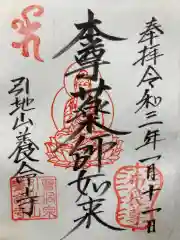 奉拝令和二年一月十一日
本尊薬師如来
引地山養命寺